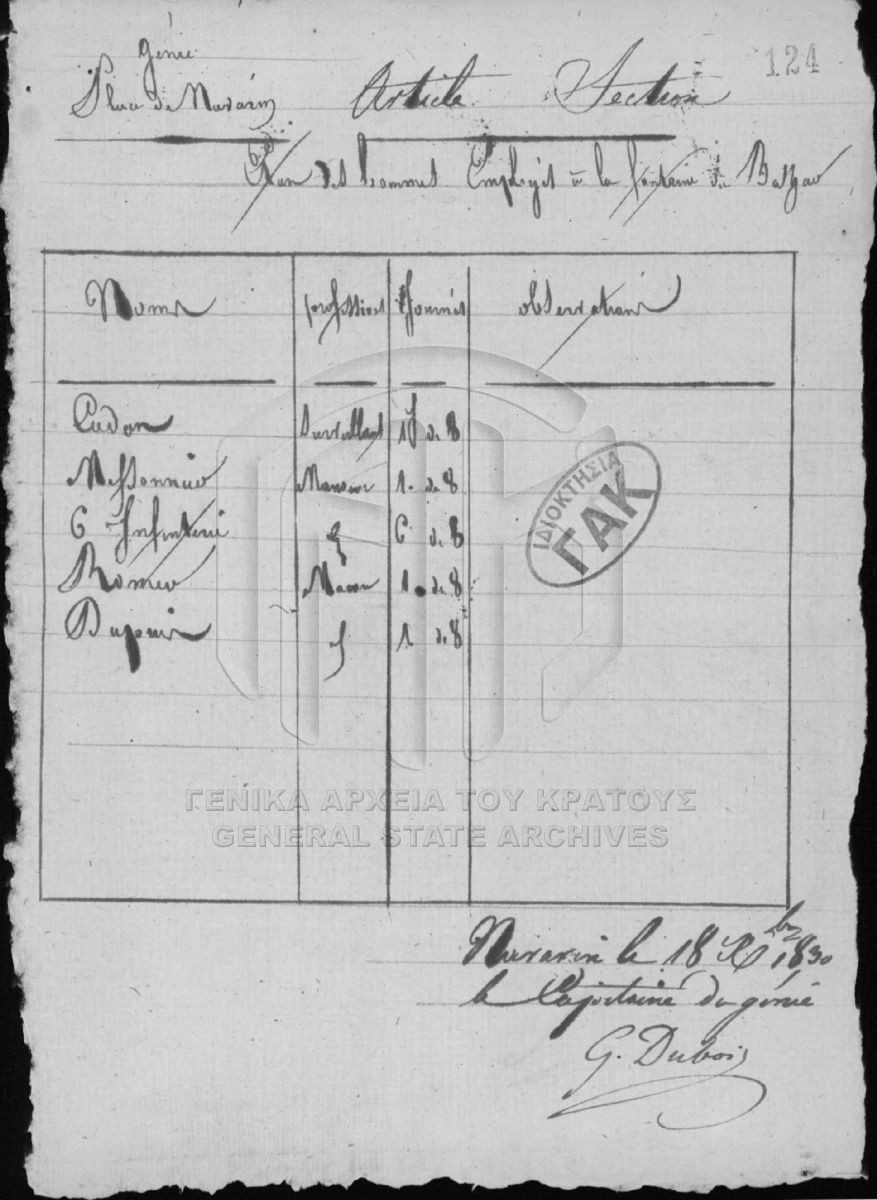 124
Génie
Place de Navarin
Article Section
Etat des hommes Employés à la fontaine du Bazar
Noms professions Journées observations
Cudon Surveillant 1 J de 8
Messonnier Manœuv 1. de 8
6 Infanterie 6 de 8
Romeo Macon 1. de 8
Dupuis 1 de 8
ΙΔΙΟΚΤΗΣΙΑ
ΓΑΚ
ΓΕΝΙΚΑ ΑΡΧΕΙΑ ΤΟΥ ΚΡΑΤΟΥΣ
GENERAL STATE ARCHIVES
Navarin le 18 Xbre 1830
le Capitaine du génie
G. Dubois